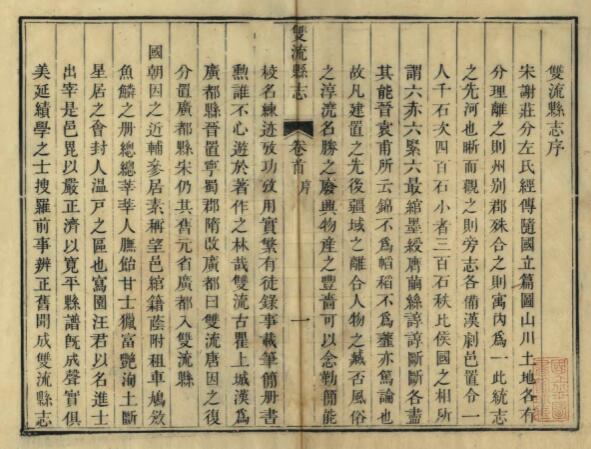 雙流縣志序
宋謝莊分左氏經傳隨國立篇圖山川土地各有
分理離之則州別郡殊合之則寓內爲一此統志
之先河也晰而觀之則旁志各備漢劇邑置令一
人千石次四百石小者三百石秩比侯國之相所
謂六亦六緊六最綰墨綬膺繭絲諄諄斷斷各盡
其能晉袁甫所云錦不爲帽稻不爲虀亦篤論也
故凡建置之先後疆域之離合人物之臧否風俗
之淳流名勝之廢興物産之豐嗇可以念勒簡能
雙流縣志
卷首
序
一
校名練迹攷功攷用實繁有徒錄事載筆簡册書
勲誰不心遊於著作之林哉雙流古瞿上城漢爲
廣都縣晉置寧蜀郡隋改廣都曰雙流唐因之復
分置廣都縣宋仍其舊元省廣都入雙流縣
國朝因之近輔參居素稱望邑綰籍蔭附租車鳩斂
魚鱗之册總總莘莘人膴飴甘士獵富艷洵土斷
星居之會封人溫戸之區也寫園汪君以名進士
出宰是邑毘以嚴正濟以寬平縣譜旣成聲實俱
美延績學之士捜羅前事辨正舊聞成雙流縣志